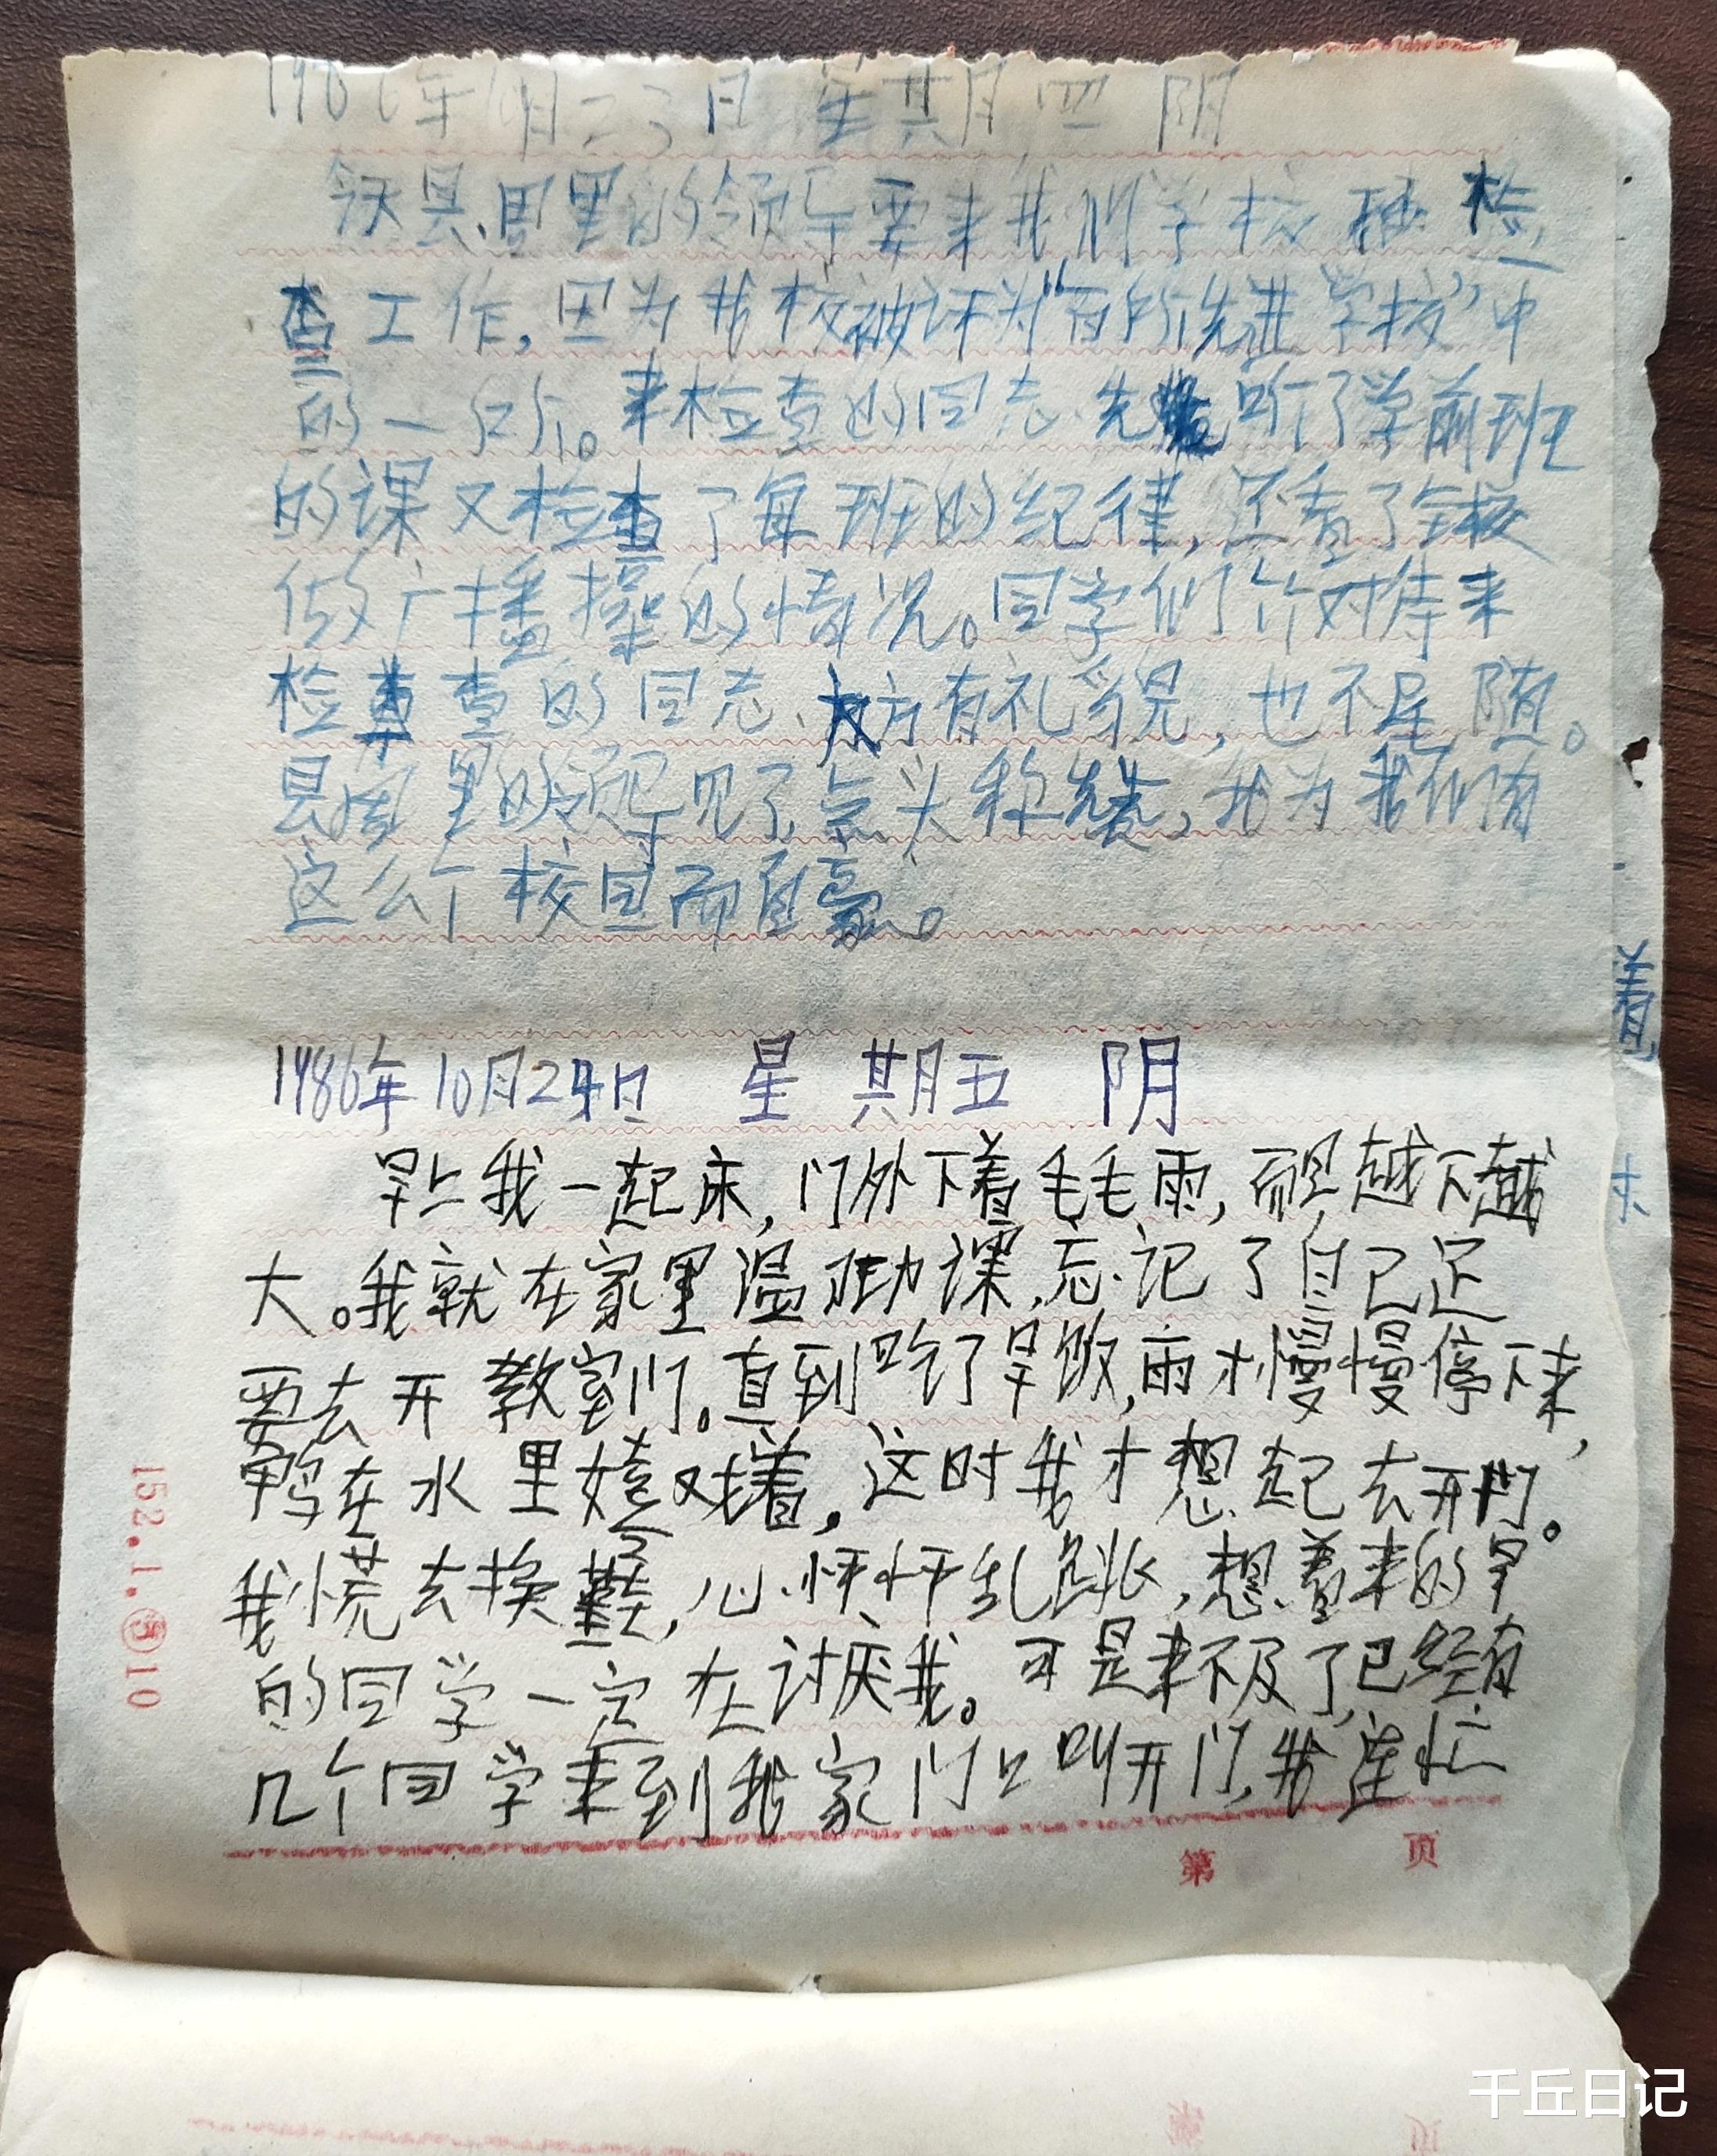 1986年10月23日 星期四 阴
县、里的领导要来我们学校检
查工作,因为我校被评为“百所先进学校”中
的一所。来检查的同志先听了学前班
的课又检查了每班的纪律,还看了全校
做广播操的情况。同学们个个对待来
检查的同志大方有礼貌,也不尾随。
县里的领导见了点头称赞,我为我们有
这么个校园而自豪。
1986年10月24日 星期五 阴
早上我一起床,门外下着毛毛雨,而且越下越
大。我就在家里温功课,忘记了自己还
要去开教室门。直到吃了早饭,雨才慢慢停下来,
鸭在水里嬉戏着,这时我才想起去开门。
我慌去换鞋,心怦怦乱跳,想着来的早
的同学一定在讨厌我。可是来不及了,已经有
几个同学来到我家门口叫开门,我连忙
152.1.⑤10
第 页
千丘日记